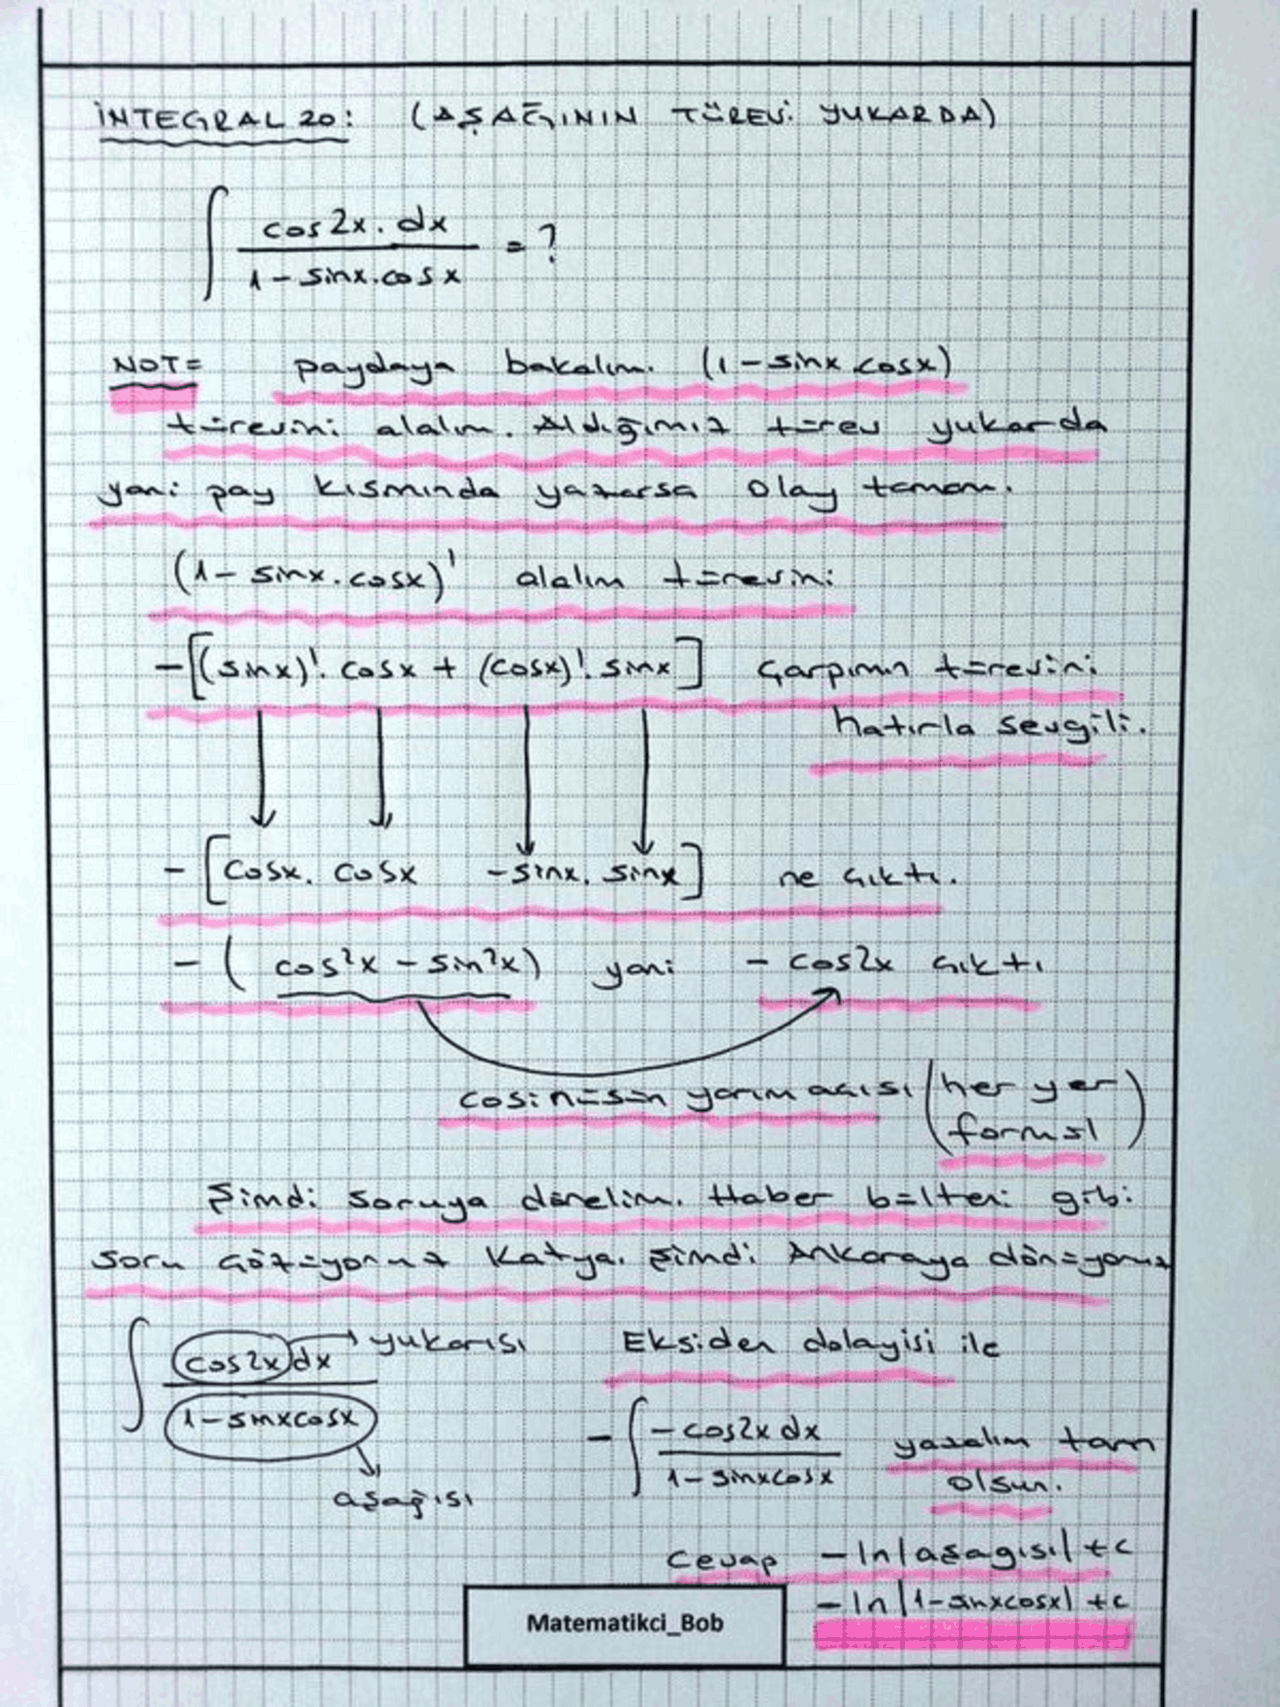 İNTEGRAL 20: (AŞAĞININ TÜREVİ YUKARDA)
∫ cos2x.dx / 1-sinx.cosx = ?
NOT= paydaya bakalım. (1-sinx cosx)
türevini alalım. Aldığımız türev yukarda
yani pay kısmında yazarsa olay tamam.
(1-sinx.cosx)' alalım türevini
-[(sinx)'.cosx + (cosx)'.sinx] çarpımın türevini
hatırla sevgili.
-[cosx.cosx -sinx.sinx] ne çıktı.
-(cos²x-sin²x) yani -cos2x çıktı
cosinüsün yarım açısı (her yer
formül)
Şimdi soruya dönelim. Haber bülteni gibi
soru çözüyoruz Katya. Şimdi Ankaraya dönüyoruz
∫ cos2x dx / 1-sinxcosx → yukarısı
aşağısı
Eksiden dolayisi ile
-∫ -cos2x dx / 1-sinxcosx yazalım tam
olsun.
Cevap -ln|aşagısı|+c
-ln|1-sinxcosx|+c
Matematikci_Bob